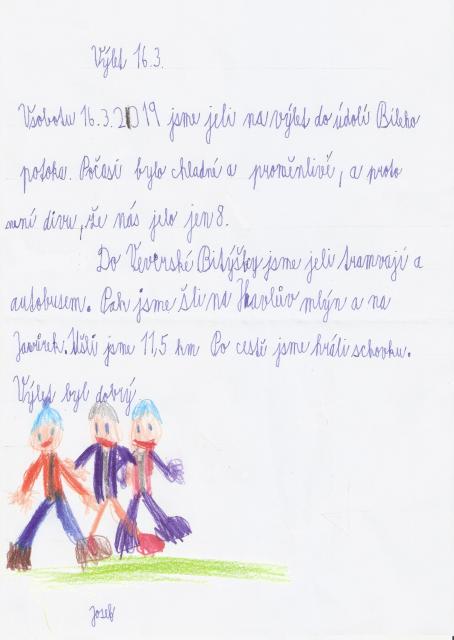 Výlet 16.3.
Vsobotu 16.3.2019 jsme jeli na výlet do údolí Bílého
potoka. Počasí bylo chladné a proměnlivé, a proto
není divu, že nás jelo jen 8.
Do Veverské Bitýšky jsme jeli tramvají a
autobusem. Pak jsme šli na Havlův mlýn a na
Javůrek. Ušli jsme 11,5 km Po cestě jsme hráli schovku.
Výlet byl dobrý
Josef